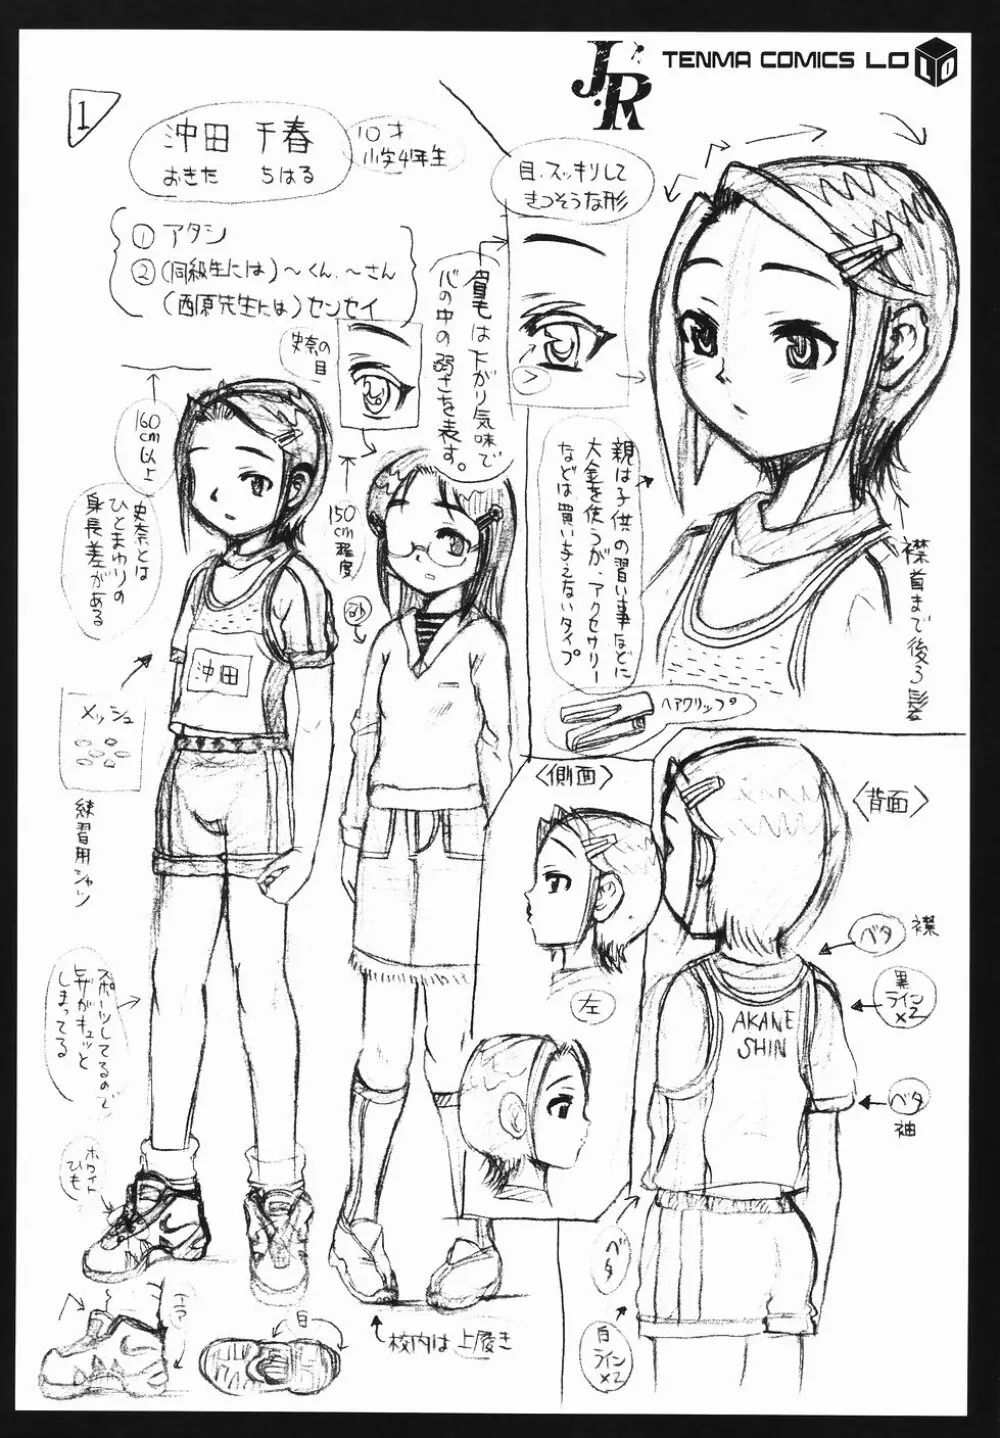 JR
TENMA COMICS LO
LO
1
沖田 千春
おきた ちはる
10才
小学4年生
① アタシ
② (同級生には) ～くん、～さん
(西原先生には) センセイ
目、スッキリして
きつそうな形
眉毛は下がり気味で
心の中の弱さを表す。
史奈の
目
160
cm
以上
史奈とは
ひとまわりの
身長差がある
150
cm
程度
親は子供の習い事などに
大金を使うが、アクセサリー
などは買い与えないタイプ
ヘアクリップ
襟首まで後ろ髪
沖田
メッシュ
練習用シャツ
スポーツしてるので
ヒザがキュッと
しまってる
ホワイト
ひも
白
校内は上履き
〈側面〉
左
〈背面〉
ベタ
襟
黒
ライン
×2
AKANE
SHIN
ベタ
袖
ベタ
白
ライン
×2